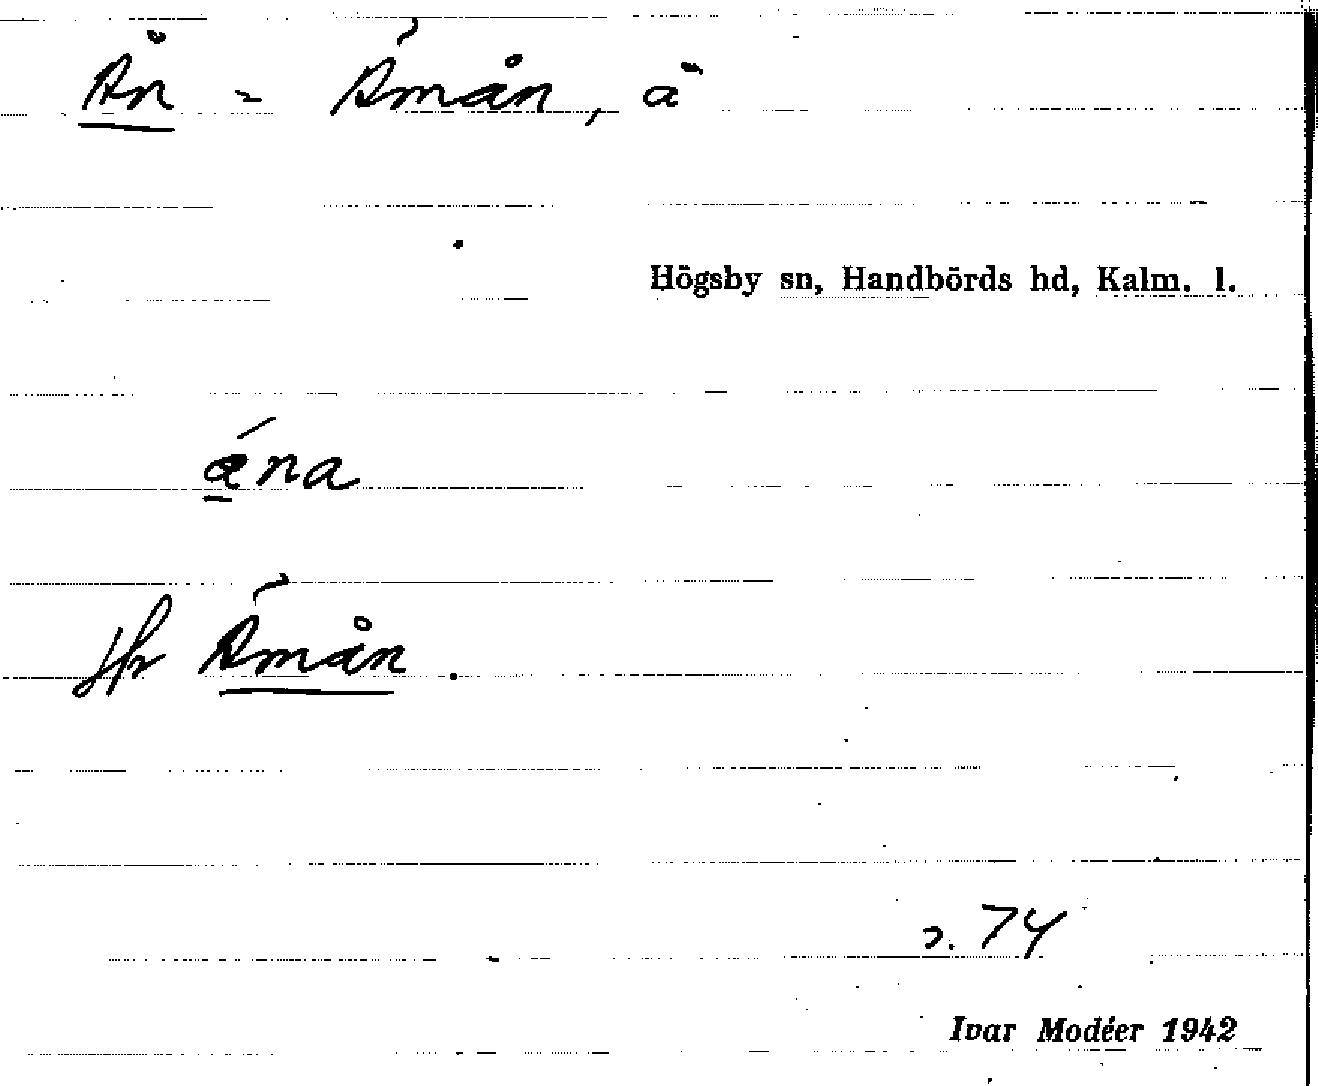 Ån = Åmån, å
Högsby sn, Handbörds hd, Kalm. l.
ǻna
Jfr Åmån.
s. 74
Ivar Modéer 1942